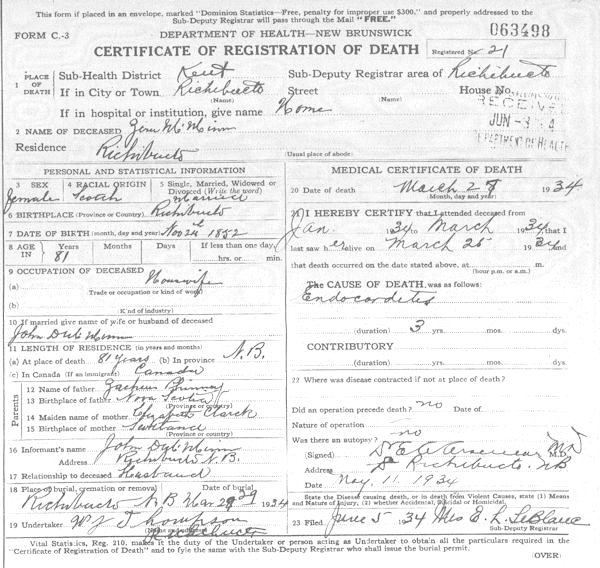 This form if placed in an envelope, marked "Dominion Statistics—Free, penalty for improper use $300," and properly addressed to the
Sub-Deputy Registrar will pass through the Mail "FREE."
FORM C.-3 DEPARTMENT OF HEALTH—NEW BRUNSWICK 063498
CERTIFICATE OF REGISTRATION OF DEATH Registered No. 21
1 PLACE OF DEATH Sub-Health District Kent Sub-Deputy Registrar area of Richibucto
If in City or Town Richibucto Street House No.
(Name) (Name)
If in hospital or institution, give name Home
RECEIVED
JUN - 4
DEPARTMENT OF HEALTH
2 NAME OF DECEASED
Residence Richibucto
(Usual place of abode)
PERSONAL AND STATISTICAL INFORMATION
3 SEX 4 RACIAL ORIGIN 5 Single, Married, Widowed or Divorced (Write the word)
Female Scotch Married
6 BIRTHPLACE (Province or Country) Richibucto
7 DATE OF BIRTH (month, day and year) Nov 24 1852
8 AGE Years Months Days If less than one day,
IN 81 hrs. or min.
9 OCCUPATION OF DECEASED
(a) Housewife
Trade or occupation or kind of work
(b)
Kind of industry
10 If married give name of wife or husband of deceased
John
11 LENGTH OF RESIDENCE (in years and months)
(a) At place of death 81 years (b) In province N.B.
(c) In Canada (If an immigrant) Canada
Parents
12 Name of father
13 Birthplace of father Nova Scotia
(Province or country)
14 Maiden name of mother Elizabeth
15 Birthplace of mother Scotland
(Province or country)
16 Informant's name John
Address Richibucto N.B.
17 Relationship to deceased Husband
18 Place of burial, cremation or removal Date of burial
Richibucto N B Mar 29 1934
19 Undertaker W J Thompson
Richibucto
MEDICAL CERTIFICATE OF DEATH
20 Date of death March 27 1934
(Month, day and year)
21 I HEREBY CERTIFY that I attended deceased from
Jan. 1934 to March 1934, that I
last saw her alive on March 25 1934 and
that death occurred on the date stated above, at m.
(hour p.m. or a.m.)
The CAUSE OF DEATH, was as follows:
Endocarditis
(duration) 3 yrs. mos. dys.
CONTRIBUTORY
(duration) yrs. mos. dys.
22 Where was disease contracted if not at place of death?
Did an operation precede death? no Date of
Nature of operation
Was there an autopsy? no
(Signed) M.D.
Address Richibucto NB
May 11 1934
State the Disease causing death, or in death from Violent Causes, state (1) Means
and Nature of Injury, (2) whether Accidental, Suicidal or Homicidal.
23 Filed June 5 1934 Mrs E. L. LeBlanc
Sub-Deputy Registrar
Vital Statistics, Reg. 210, makes it the duty of the Undertaker or person acting as Undertaker to obtain all the particulars required in the
"Certificate of Registration of Death" and to fyle the same with the Sub-Deputy Registrar who shall issue the burial permit.
(OVER)